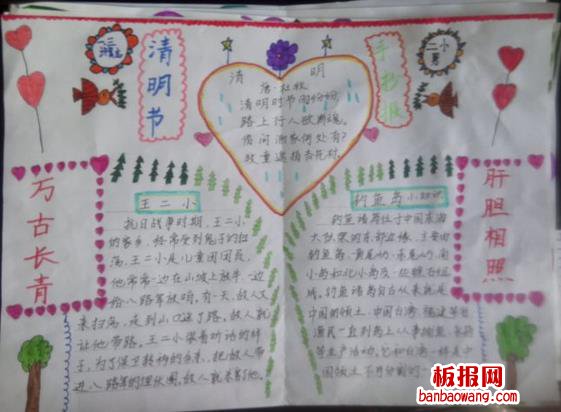 清明节
清 明
唐·杜牧
清明时节雨纷纷,
路上行人欲断魂。
借问酒家何处有?
牧童遥指杏花村。
手抄报
二小
万古长青
王二小
抗日战争时期,王二小
的家乡,经常受到鬼子的扫
荡,王二小是儿童团团员,
他常常一边在山坡上放牛,一边
给八路军放哨,有一天,敌人又
来扫荡,走到山口迷了路,敌人就
让他带路。王二小装着听话的样
子,为了保卫转移的乡亲,把敌人带
进八路军的埋伏圈,敌人就杀害了他。
钓鱼岛小知识
钓鱼诸岛位于中国东海
大陆架的东部边缘,主要由
钓鱼岛、黄尾屿、赤尾屿、南
小岛和北小岛及一些礁石组
成。钓鱼诸岛自古以来就是
中国的领土,中国台湾、福建等省
渔民一直到岛上从事捕鱼、采药
等生产活动,它和台湾一样是中
国领土不可分割的
肝胆相照
板报网
banbaowang.com